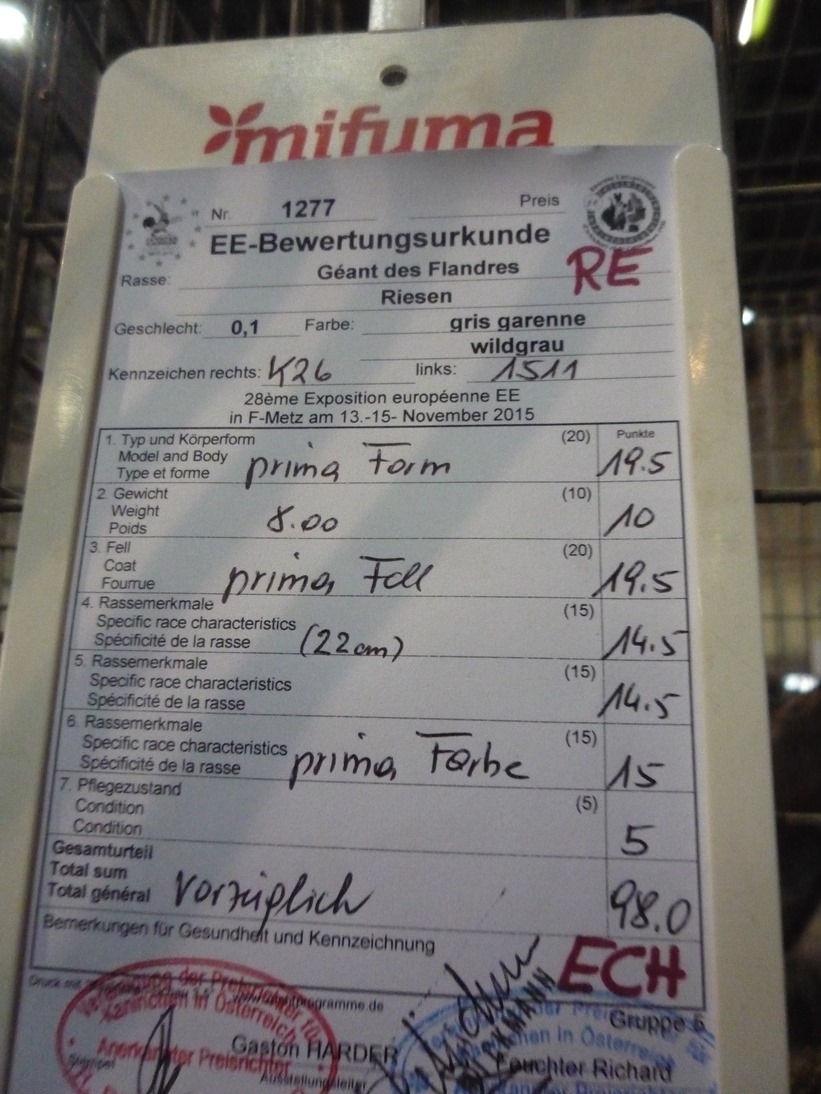 mifuma
Nr. 1277 Preis
EE-Bewertungsurkunde
RE
Rasse: Géant des Flandres
Riesen
Geschlecht: 0,1 Farbe: gris garenne
wildgrau
Kennzeichen rechts: K26 links: 1511
28ème Exposition européenne EE
in F-Metz am 13.-15- November 2015
1. Typ und Körperform (20) Punkte
Model and Body
Type et forme prima Form 19.5
2. Gewicht (10)
Weight
Poids 8.00 10
3. Fell (20)
Coat
Fourrue prima Fell 19.5
4. Rassemerkmale (15)
Specific race characteristics
Spécificité de la rasse (22cm) 14.5
5. Rassemerkmale (15)
Specific race characteristics
Spécificité de la rasse 14.5
6. Rassemerkmale (15)
Specific race characteristics
Spécificité de la rasse prima Farbe 15
7. Pflegezustand (5)
Condition
Condition 5
Gesamturteil
Total sum
Total général Vorzüglich 98.0
Bemerkungen für Gesundheit und Kennzeichnung
ECH
Druck mit
Gruppe 6
Vereinigung der Preisrichter für
Kaninchen in Österreich
Anerkannter Preisrichter
Gaston HARDER
Ausstellungsleiter
Feuchter Richard